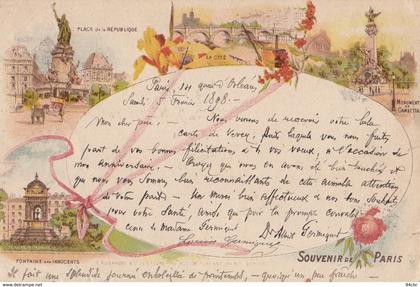 PLACE de la RÉPUBLIQUE
LA CITÉ
MONUMENT
de
GAMBETTA
Paris,
Samedi 5 Février 1898.—
Mon cher père, — Nous venons de recevoir votre
carte de Vevey, par laquelle vous nous faites
part de vos bonnes félicitations & de vos voeux, à l'occasion de
mon anniversaire. Croyez que nous en avons été bien touchés et
que nous vous sommes bien reconnaissants de cette aimable attention
de votre part. — Un merci bien affectueux & nos bons souhaits
pour votre santé, ainsi que pour la prompte
de Madame Dr Albert
FONTAINE des INNOCENTS
SOUVENIR DE PARIS
il fait une splendide journée ensoleillée de printemps, — quoiqu'un peu fraîche —
www.delcampe.net
94cbr